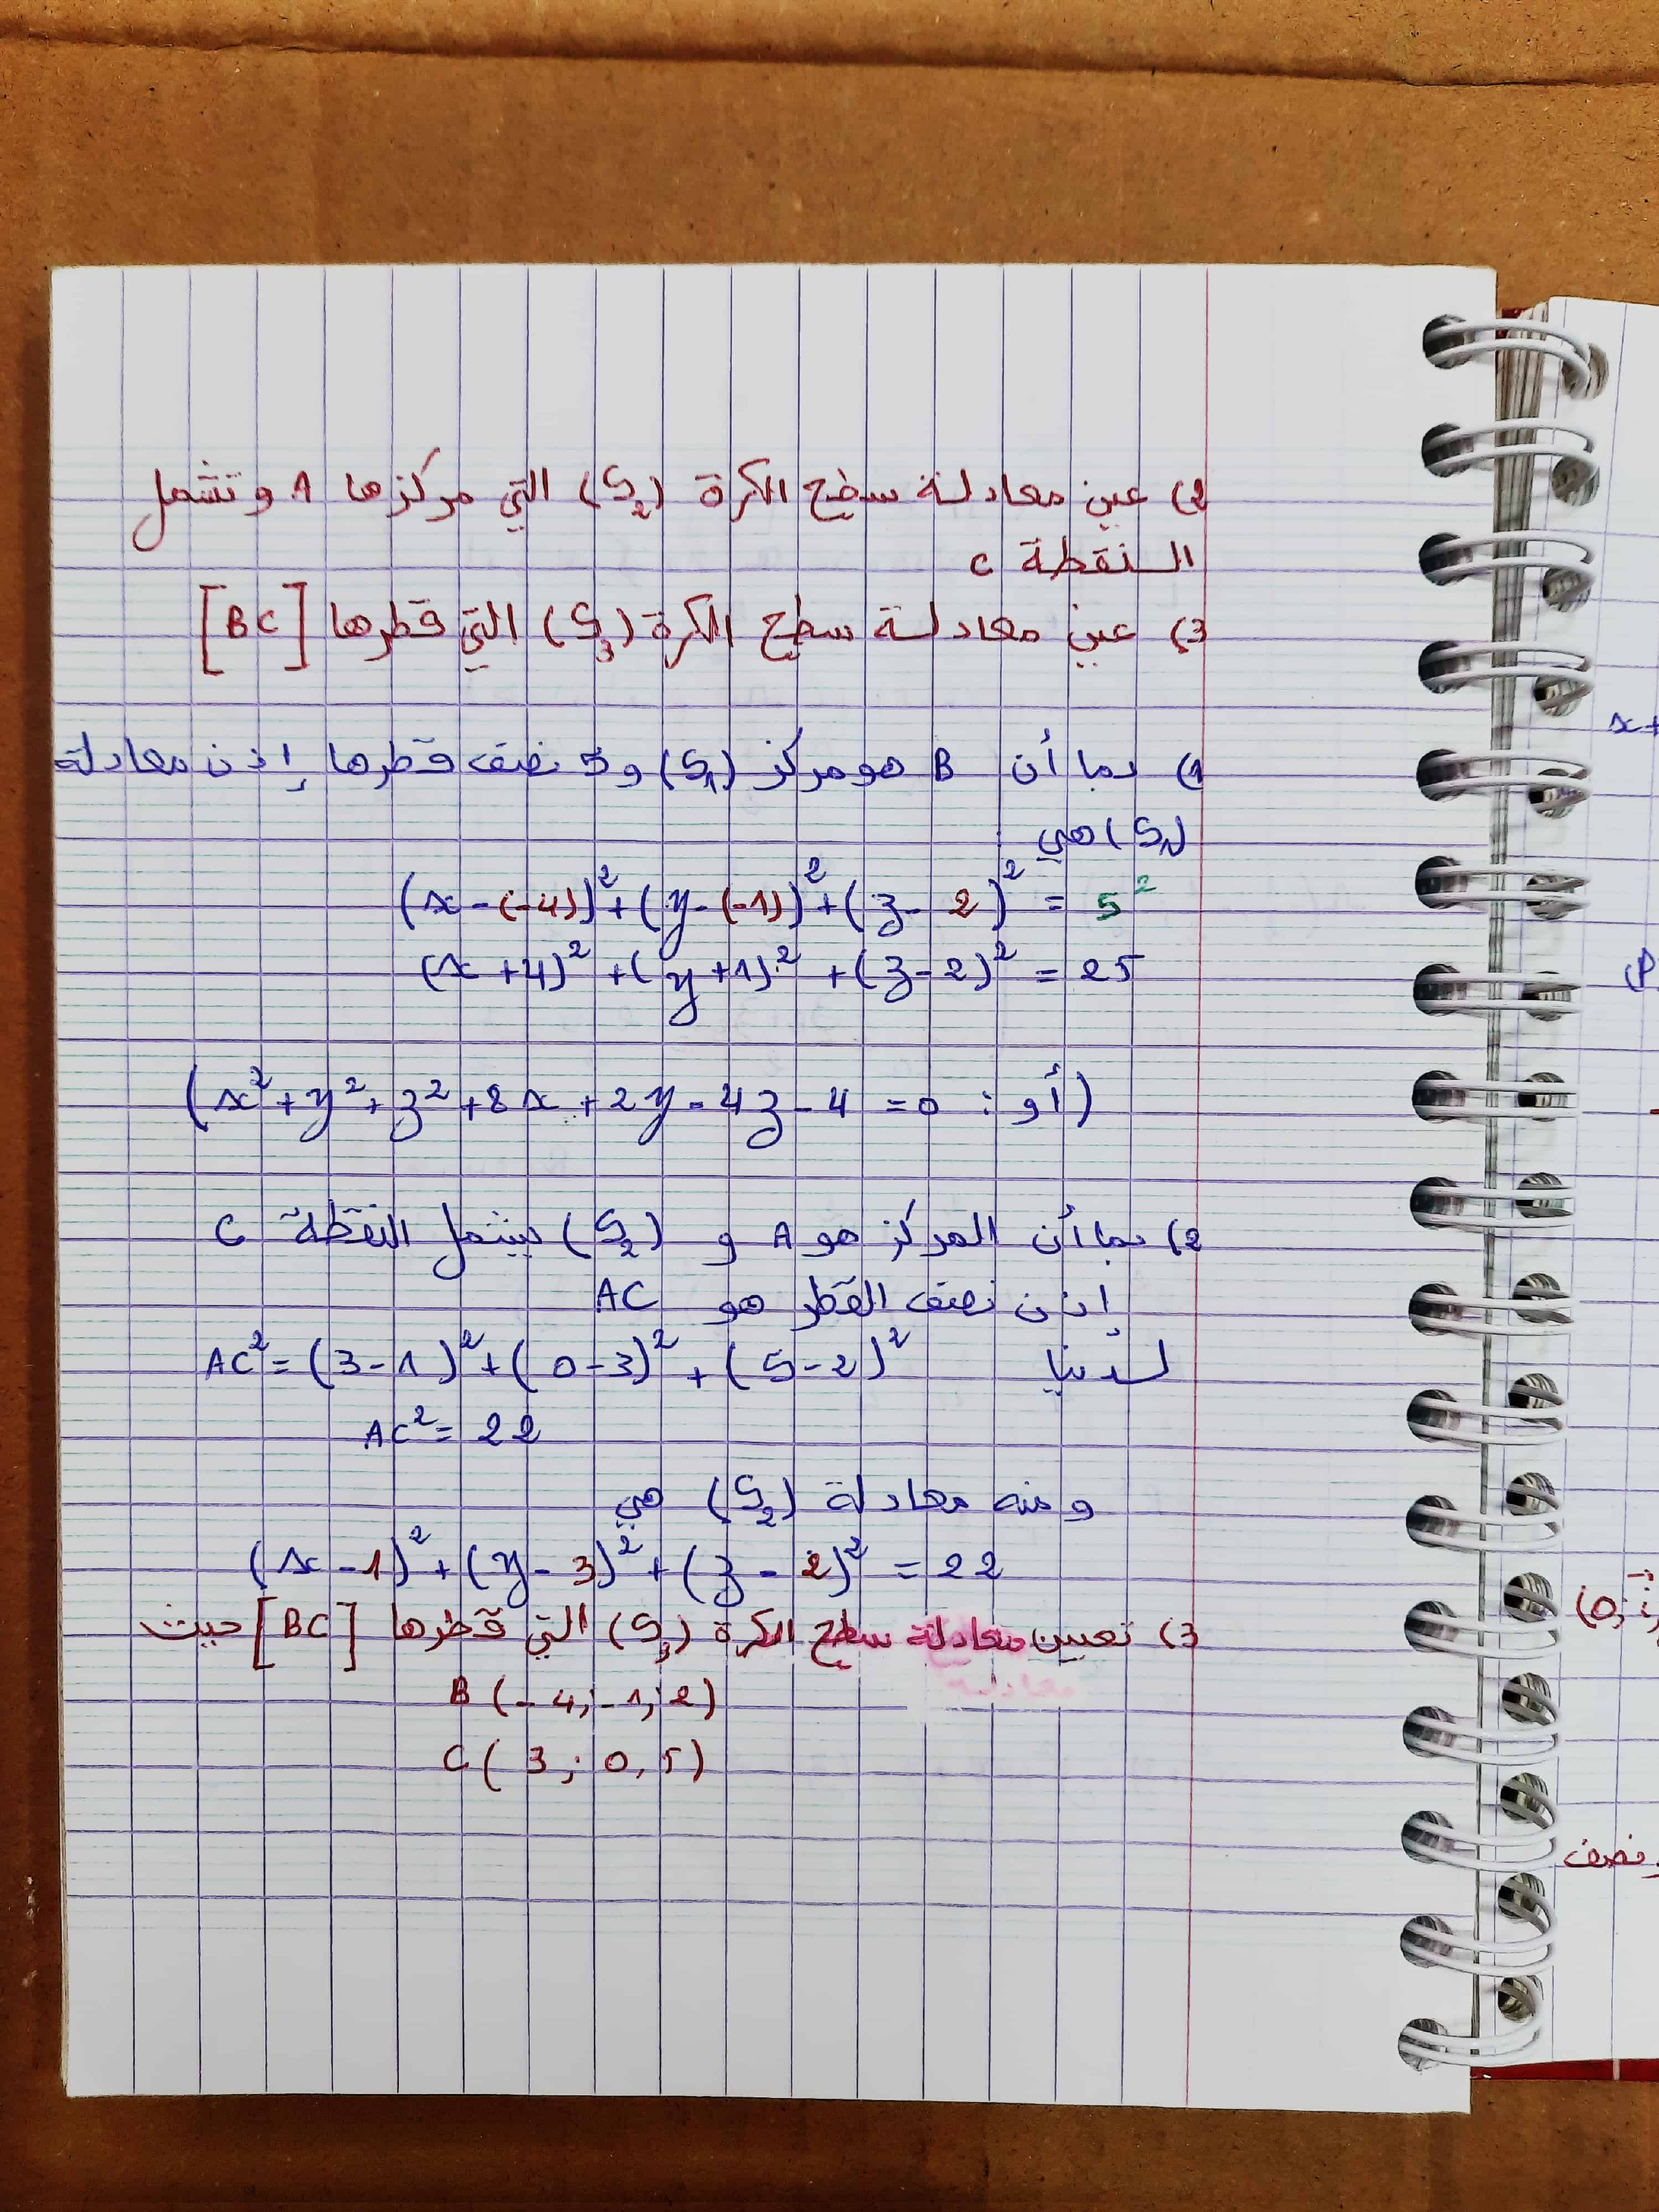 2) عين معادلة سطح الكرة (S₂) التي مركزها A وتشمل
النقطة C
3) عين معادلة سطح الكرة (S₃) التي قطرها [BC]
1) بما أن B هو مركز (S₁) و 5 نصف قطرها إذن معادلة
(S₁) هي
(x-(-4))²+(y-(-1))²+(z-2)² = 5²
(x+4)²+(y+1)²+(z-2)² = 25
(أو : x²+y²+z²+8x+2y-4z-4 =0)
2) بما أن المركز هو A و (S₂) يشمل النقطة C
إذن نصف القطر هو AC
لدينا AC²=(3-1)²+(0-3)²+(5-2)²
AC²= 22
ومنه معادلة (S₂) هي
(x-1)²+(y-3)²+(z-2)² = 22
3) تعيين معادلة سطح الكرة (S₃) التي قطرها [BC] حيث
معادلة
B(-4,-1,2)
C(3; 0,5)
x+
(P
(0; i,
ونصف